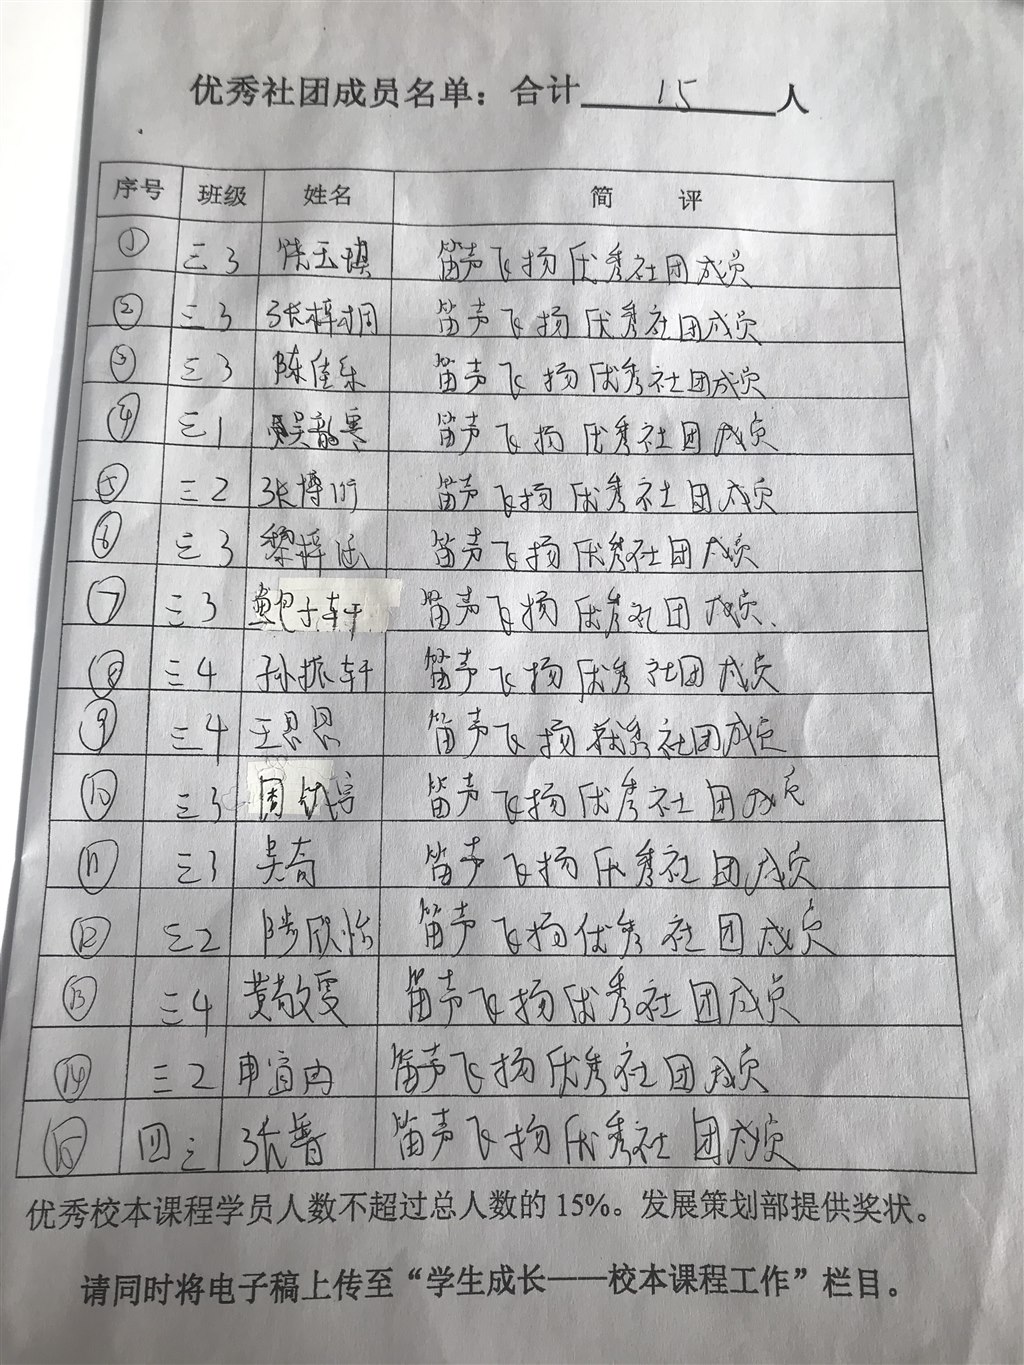 优秀社团成员名单：合计 15 人
序号 班级 姓名 简 评
① 三3 饶玉填 笛声飞扬优秀社团成员
② 三3 张梓桐 笛声飞扬优秀社团成员
③ 三3 陈佳乐 笛声飞扬优秀社团成员
④ 三1 笛声飞扬优秀社团成员
⑤ 三2 张博 笛声飞扬优秀社团成员
⑥ 三3 黎梓涵 笛声飞扬优秀社团成员
⑦ 三3 鲍子轩 笛声飞扬优秀社团成员.
⑧ 三4 孙振轩 笛声飞扬优秀社团成员
⑨ 三4 王思思 笛声飞扬优秀社团成员
⑩ 三3 周 宇 笛声飞扬优秀社团成员
⑪ 三3 吴奇 笛声飞扬优秀社团成员
⑫ 三2 陈欣怡 笛声飞扬优秀社团成员
⑬ 三4 黄敬雯 笛声飞扬优秀社团成员
⑭ 三2 申宜冉 笛声飞扬优秀社团成员
⑮ 四三 张普 笛声飞扬优秀社团成员
优秀校本课程学员人数不超过总人数的 15%。发展策划部提供奖状。
请同时将电子稿上传至“学生成长——校本课程工作”栏目。